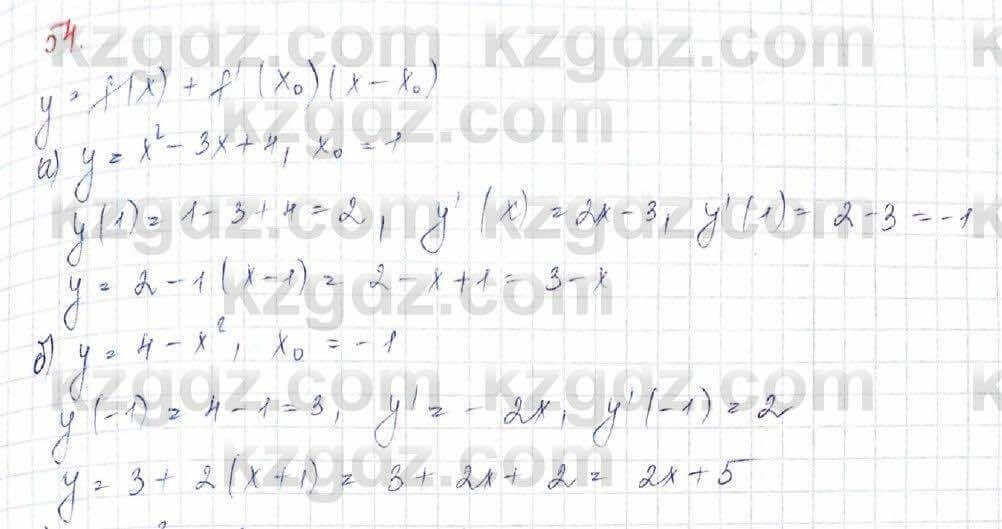 54.
y = f(x) + f'(x₀)(x - x₀)
а) y = x² - 3x + 4, x₀ = 1
y(1) = 1 - 3 + 4 = 2, y'(x) = 2x - 3, y'(1) = 2 - 3 = -1
y = 2 - 1(x - 1) = 2 - x + 1 = 3 - x
б) y = 4 - x², x₀ = -1
y(-1) = 4 - 1 = 3, y' = - 2x, y'(-1) = 2
y = 3 + 2(x + 1) = 3 + 2x + 2 = 2x + 5
kzgdz.com
kzgdz.com
kzgdz.com
kzgdz.com
kzgdz.com
kzgdz.com
kzgdz.com
kzgdz.com